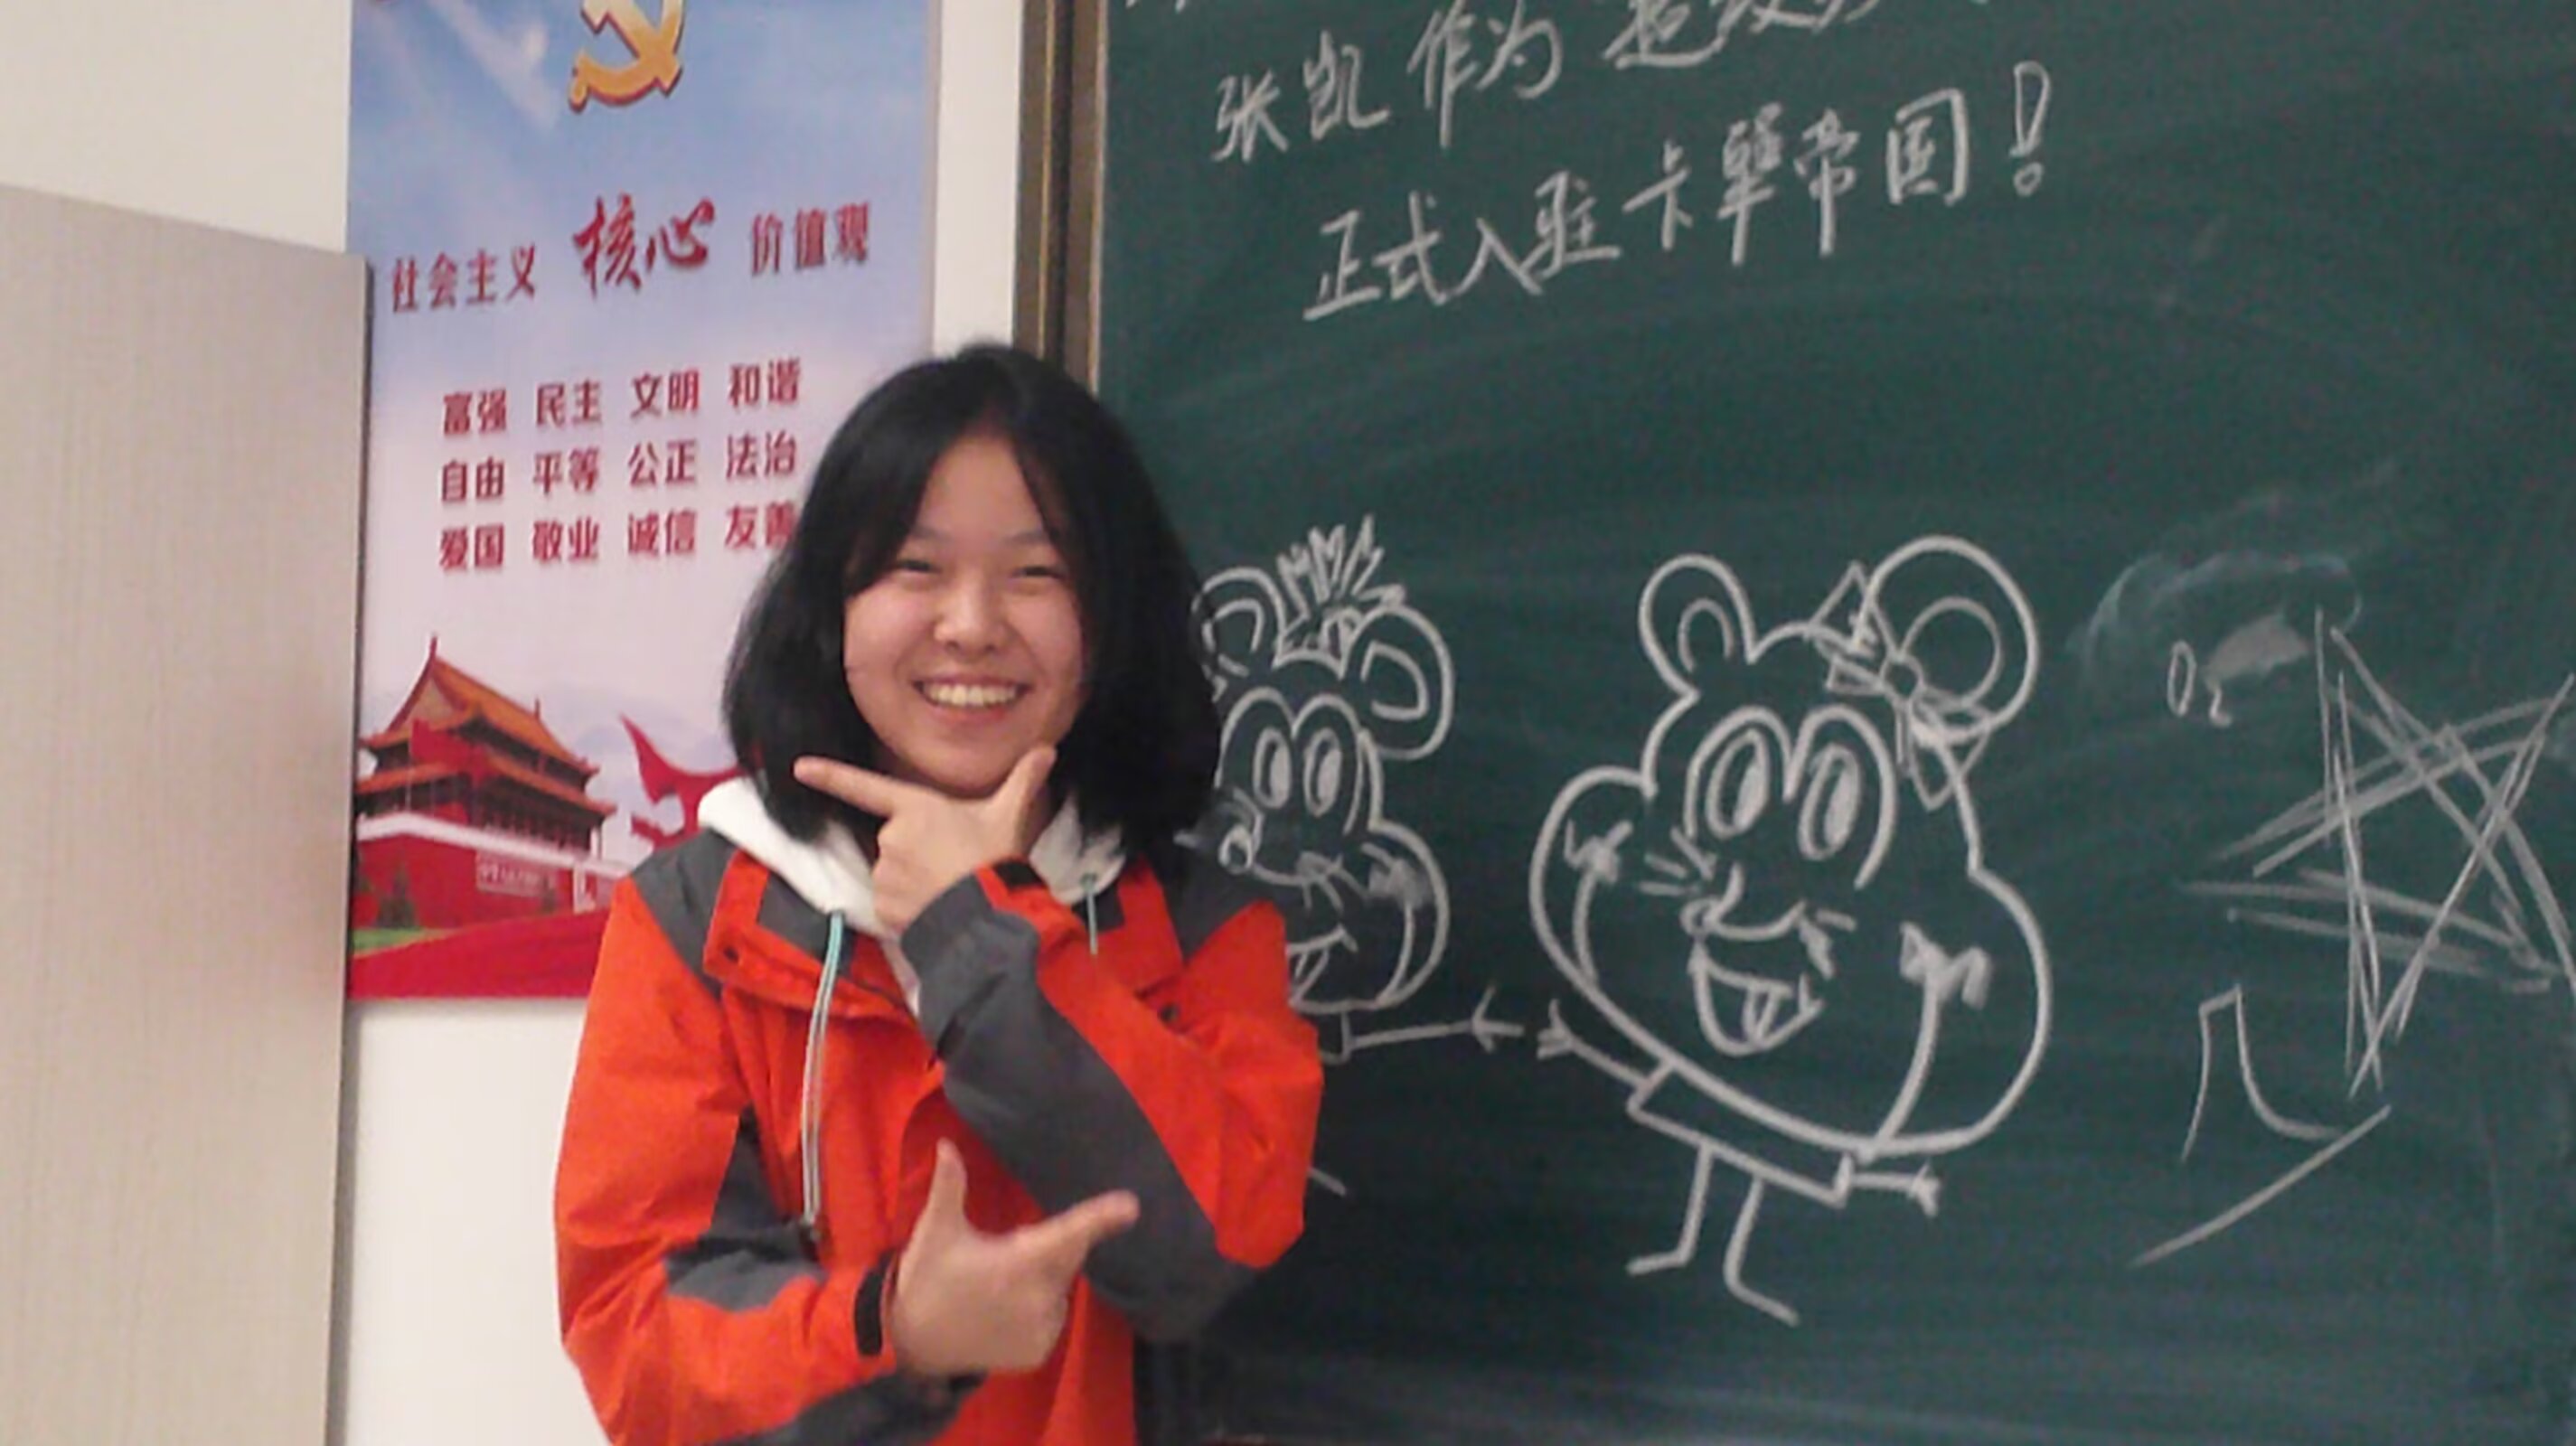 社会主义 核心 价值观
富强 民主 文明 和谐
自由 平等 公正 法治
爱国 敬业 诚信 友善
张凯作为
正式入驻卡犟帝国！